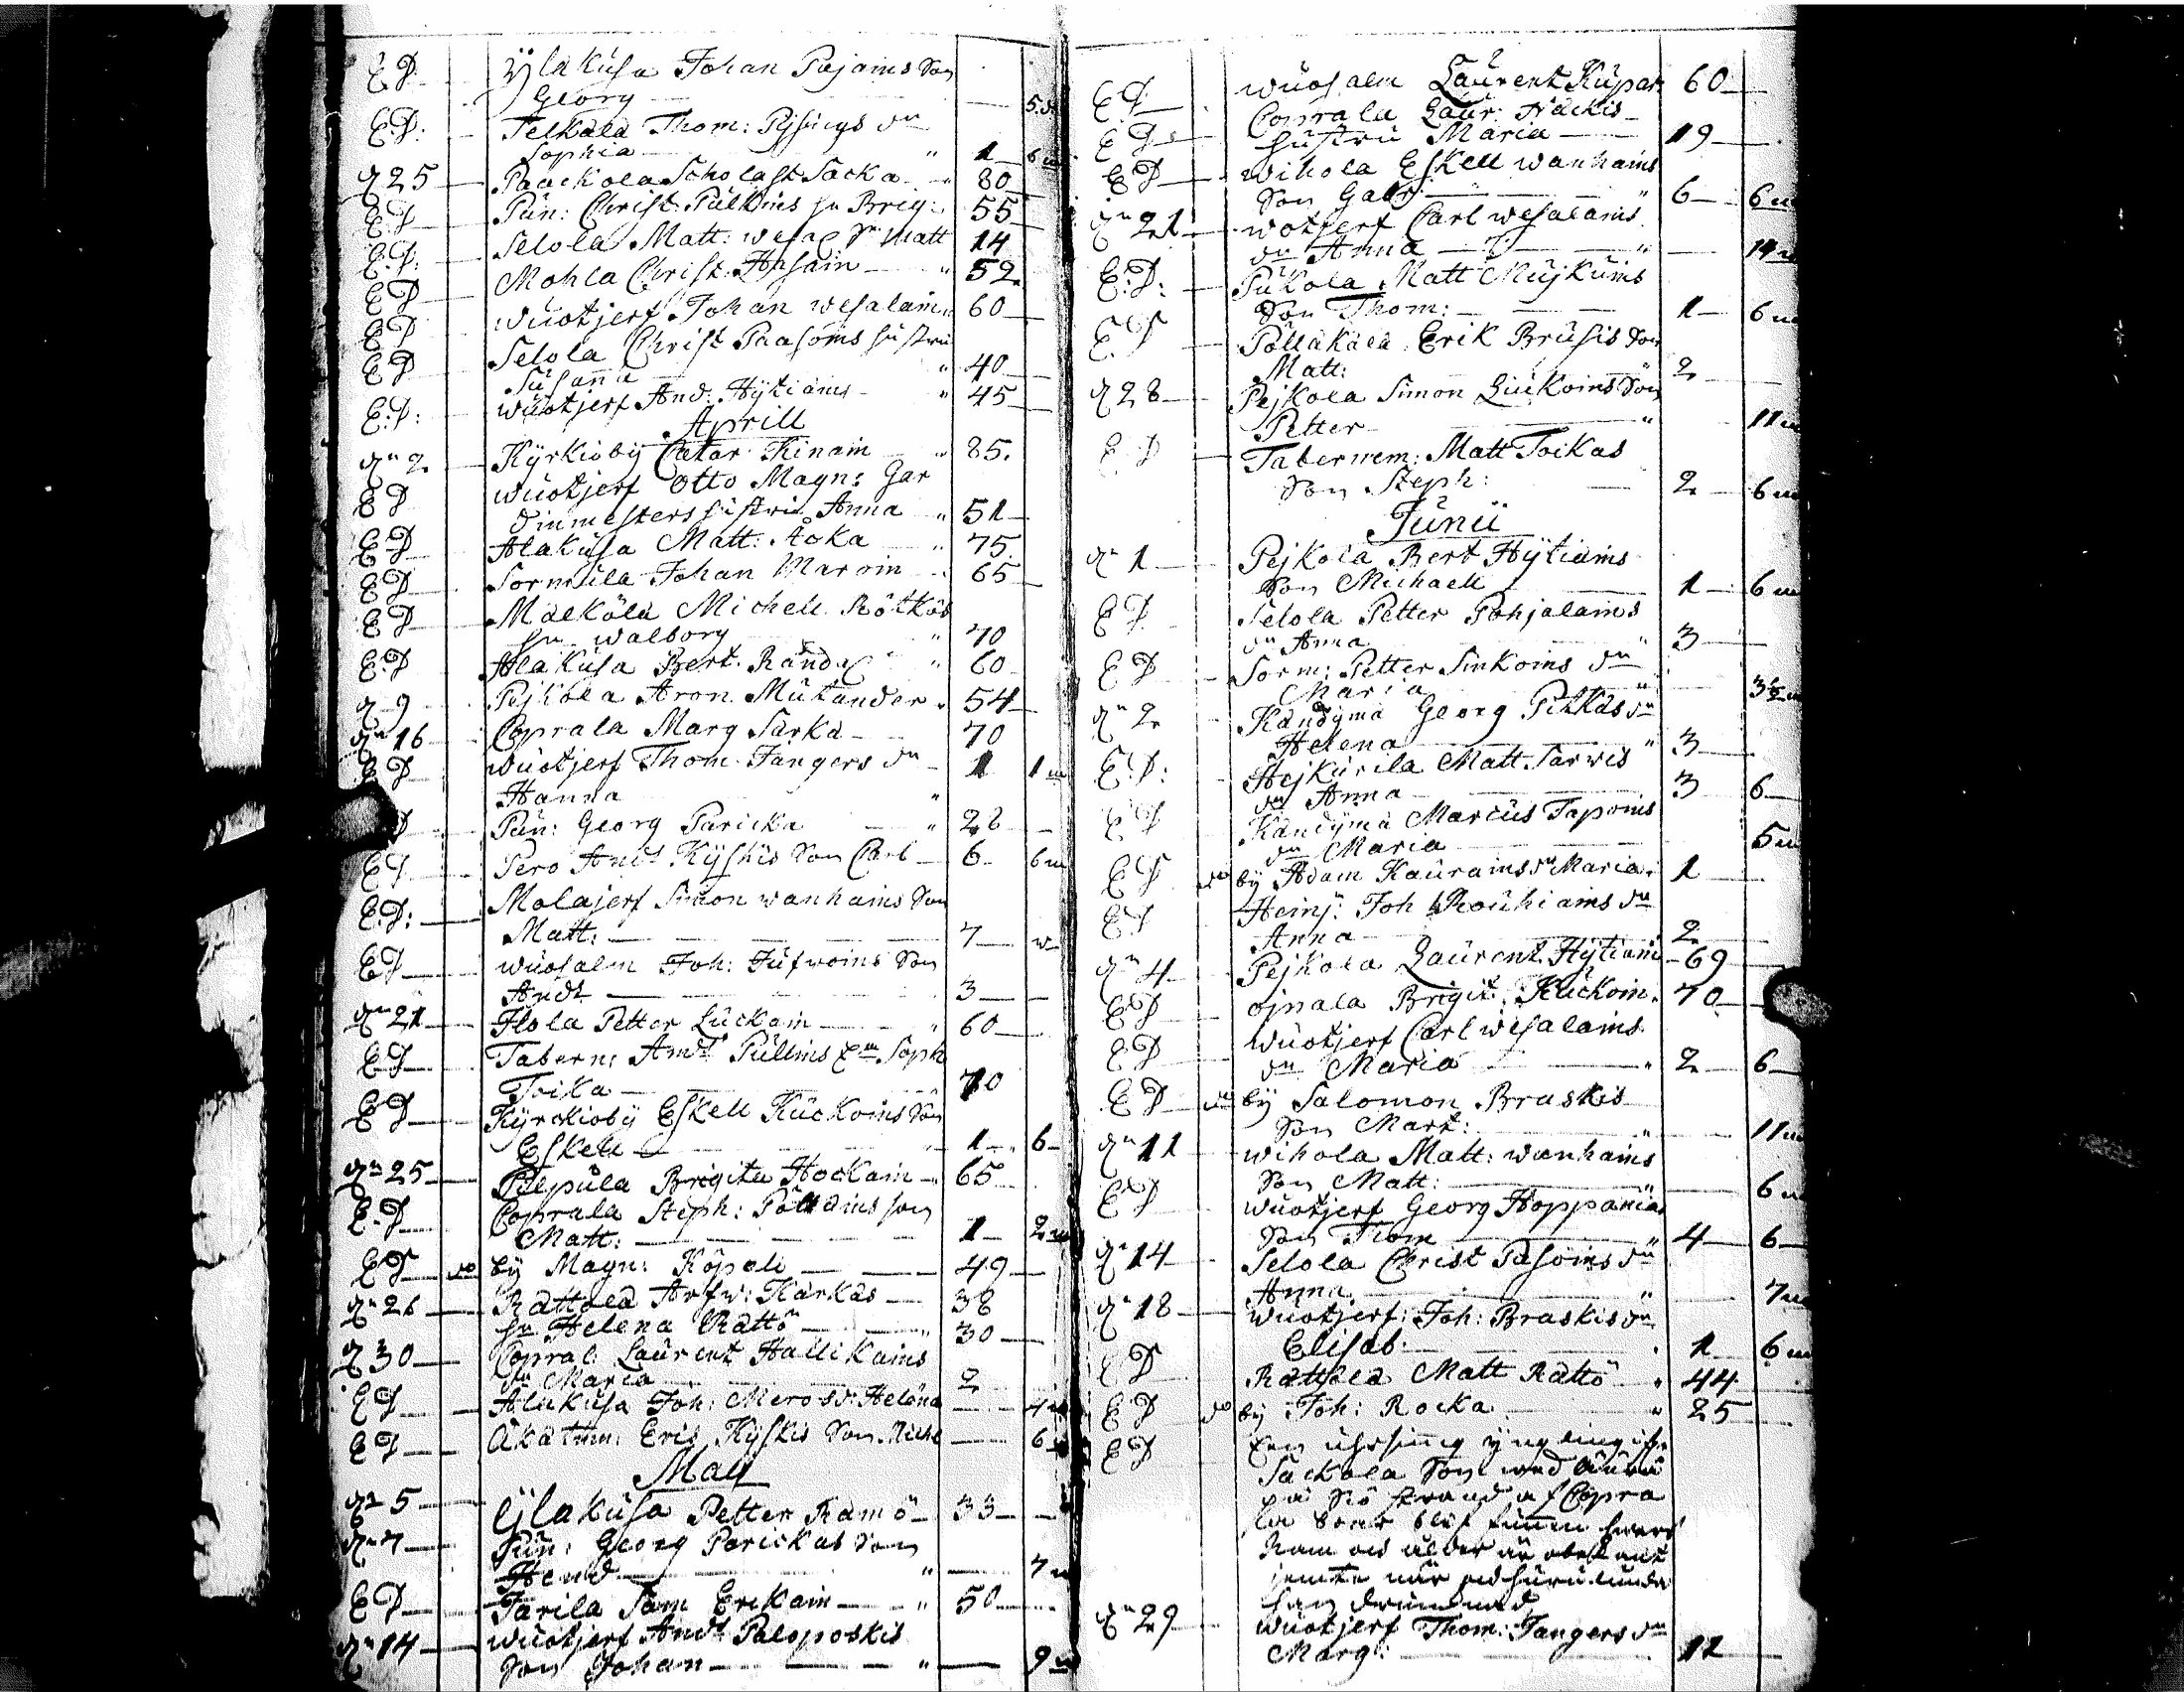 E D Ylakusa Johan Pajains Son
Georg — 5 d
E D: Telkälä Thom: Pysings dr
Sophia — " 1 6 m
d 25 Paackola Scholast Sacka " 80
E D Pun: Christ: Pulkins hu Brig: 55
E: D: Selola Matt: wesa Sn Matt 14
E D Mohla Christ. Hosain " 52
E D wuotjerf Johan wesalain " 60
E D Selola Christ Paasoins hustru
Susanna " 40
E: D: wuotjerf And: Hytiäins " 45
Aprill
dn 2 Kyrkioby Catar Kinain " 85.
E D wuotjerf Otto Magn: Gar
dinmesters hustru Anna " 51
E D Alakusa Matt: Äoka " 75.
E D Sormula Johan Maroin 65
E D Mälkölä Michell Rötkös
hu walborg " 70
E. D Alakusa Bert. Randa " 60
d 9 Pejkola Aron Mutander " 54
dn 16 Coprala Marg Sarka 70
E D wuotjerf Thom. Tangers dn 1 1 m
Hanna "
D Pun: Georg Paricka " 28
E D Pero Andr Kyskis Son Carl 6 6 m
E. D: Molajerf Simon wanhains Son
Matt: 7 w
E D wuosalm Joh: Jufwoins Son
Andr 3
dn 21 Ilola Petter Luckain " 60
E D Tabern: Andr Pullins Em Soph
Toika 70
E D Kyrckioby Eskell Kuckoins Son
Eskell 1 6
dn 25 Pulpula Brigita Hockain " 65
E. D Coprala Steph: Pölläins son
Matt: 1 2 m
E D do by Magn: Köpoli 49
dn 26 Rattola Arfw: Karkas 38
hu Helena Rattö " 30
d 30 Copral: Laurent Hallikains
dn Maria 2
E D Alakusa Joh: Meros dr Helena 4
E D Akatmm: Eris Kyskis Son Miche 6
Maij
dn 5 Ylakusa Petter Ramö 33
dn 7 Pun: Georg Parickas Son
Hend " 7
E D Tarila Sam Erikain " 50
dn 14 wuotjerf Andr Paloposkis
Son Johan " 9
E D wuosalm Laurent Kupar 60
E D Coprala Laur: Näckis
hustru Maria 19
E D wihola Eskell wanhains
Son Gabr " 6 6 m
dn 21 wotjerf Carl wesalains
dn Anna " 14
E: D: Pukola Matt Mujkuins
Son Thom: 1 6 m
E. D Pöllakälä Erik Brusis Son
Matt: " 2
d 28 Pejkola Simon Liukoins Son
Petter " 11 m
E D Tabernem: Matt Toikas
Son Steph: 2 6 m
Junii
dn 1 Pejkola Bert Hytiäins
Son Michaell 1 6 m
E D Selola Petter Pohjalains
dn Anna " 3
E D Sorm: Petter Sinkoins dn
Maria " 3½ m
dn 2 Kandyma Georg Pitkäs dn
Helena " 3
E. D: Hejkurila Matt. Sarwis
dn Anna 3 6
E D Kandyma Marcus Taponis
dn Maria 5 m
E D do by Adam Kaurains dr Maria 1
E D Heinj: Joh Rouhiains dn
Anna 2
dn 4 Pejkola Laurent Hytiain 69
E D ojnala Brigit: Kuckoin. 70
E D wuotjerf Carl wesalains
dn Maria " 2 6
E D do by Salomon Braskis
Son Mart: " 11 m
dn 11 wihola Matt: wanhains
Son Matt: " 6 m
E D wuotjerf Georg Hoppanias
Son Thom " 4 6
dn 14 Selola Christ Pasoins dn
Anna " 7 m
dn 18 wuotjerf: Joh: Braskis dn
Elisab. 1 6 m
E D Rattola Matt Rattö " 44
E D do by Joh: Rocka " 25
E D en yngling
Sackola Son
på Siö strand af Copra
la blef funnen
Ram ålder är obekant
jemte när
han
dn 29 wuotjerf Thom: Tangers dn
Marg: 12